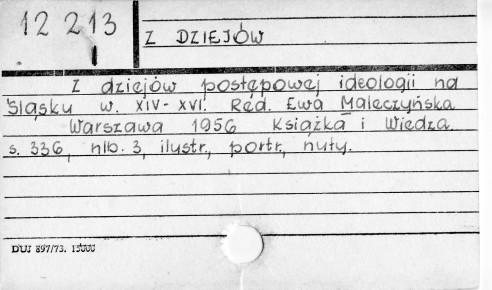 12 213
I
Z DZIEJÓW
Z dziejów postępowej ideologii na
Śląsku w. XIV-XVI. Red. Ewa Maleczyńska
Warszawa 1956 Książka i Wiedza
s. 336, nlb. 3, ilustr., portr., nuty.
DUJ 897/73. 15000